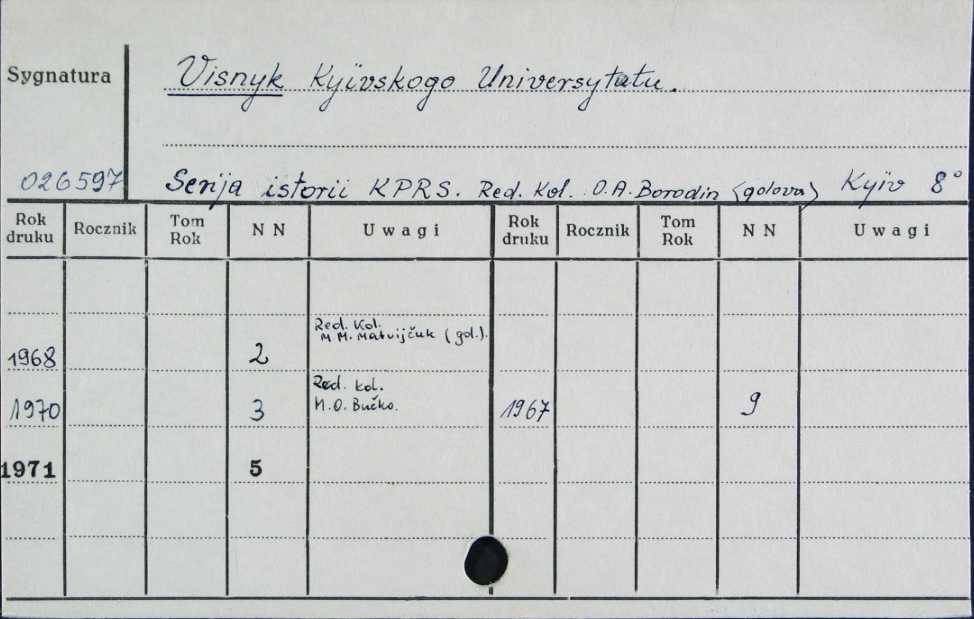 Sygnatura
Visnyk Kyïvskogo Universytetu.
026597
Serija istorii KPRS. Red. Kol. O.A. Borodin (golova) Kyïv 8°
Rok druku Rocznik Tom Rok N N Uwagi Rok druku Rocznik Tom Rok N N Uwagi
Red. Kol.
1968 2 M M. Matvijčuk (gol.).
Red. kol.
1970 3 M.O. Bučko. 1967 9
1971 5